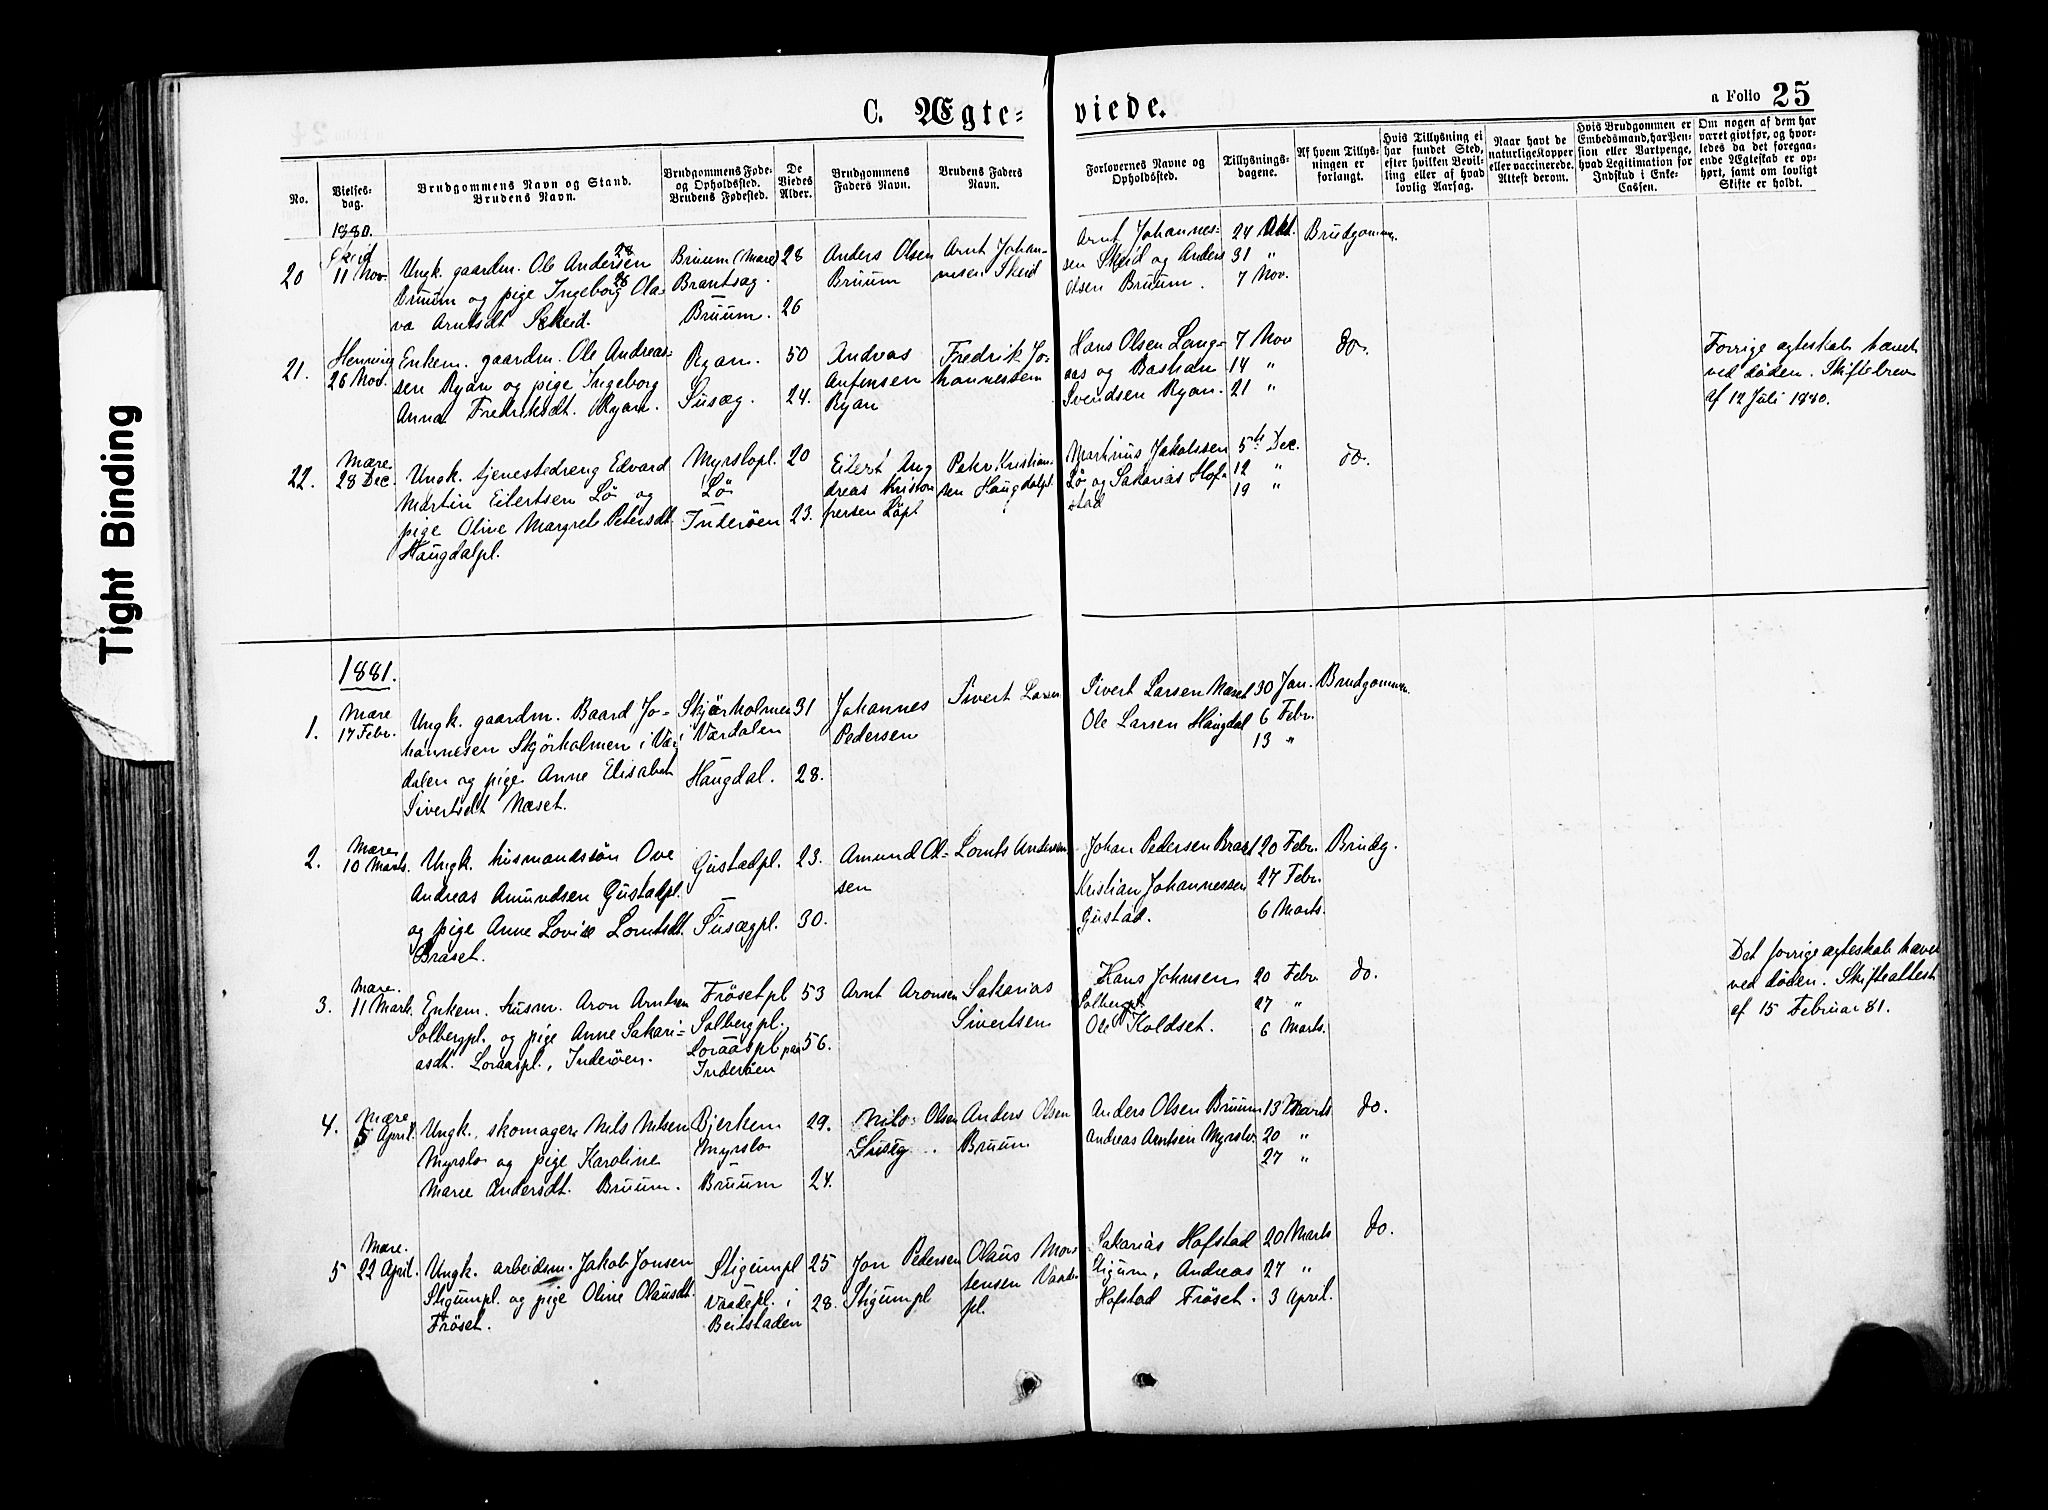 Tight Binding
C. Ægte- viede.
a Folio 25
No.
Vielses-
dag.
Brudgommens Navn og Stand.
Brudens Navn.
Brudgommens Føde-
og Opholdssted.
Brudens Fødested.
De
Viedes
Alder.
Brudgommens
Faders Navn.
Brudens Faders
Navn.
Forlovernes Navne og
Opholdssted.
Tillysnings-
dagene.
Af hvem Tillys-
ningen er
forlangt.
Hvis Tillysning ei
har fundet Sted,
efter hvilken Bevil-
ling eller af hvad
lovlig Aarsag.
Naar havt de
naturlige Kopper
eller vaccinerede.
Attest derom.
Hvis Brudgommen er
Embedsmand, har Pen-
sion eller Vartpenge,
hvad Legitimation for
Indskud i Enke-
Cassen.
Om nogen af dem har
været gift før, og hvor-
ledes da det foregaa-
ende Ægteskab er op-
hørt, samt om lovligt
Skifte er holdt.
1880.
20
Skeid
11 Nov.
Ungk. gaardm. Ole Andersen 28
Bruum og pige Ingeborg 26 Ola-
va Arntsdt Skeid.
Bruum (Mære)
Brantsag.
Bruum.
28
26
Anders Olsen
Bruum
Arnt Johan-
nesen Skeid
Arnt Johannes-
sen Skeid og Anders
Olsen Bruum.
24 Okt.
31 "
7 Nov.
Brudgommen.
21.
Henning
26 Nov.
Enkem. gaardm. Ole Andreas-
sen Ryan og pige Ingeborg
Anna Fredriksdt. Ryan.
Ryan.
Susæg.
50
24.
Andreas
Anfensen
Ryan
Fredrik Jo-
hannessen
Hans Olsen Lang-
aas og Bastian
Svendsen Ryan.
7 Nov
14 "
21 "
do.
Forrige ægteskab hævet
ved døden. Skiftebrev
af 12 Juli 1880.
22.
Mære
28 Dec.
Ungk. tjenestedreng Edvard
Martin Eilertsen Lø og
pige Oline Margrete Petersdt
Haugdalpl.
Myrslopl.
Lø
Inderøen
20
23.
Eilert An
dreas Kristof
fersen Løpl
Peter Kristian-
sen Haugdalpl.
Martinus Jakobsen
Lø og Sakarias Hof-
stad
5te Dec.
12 "
19 "
do.
1881.
1.
Mære
17 Febr.
Ungk. gaardm. Baard Jo-
hannesen Skjørholmen i Vær-
dalen og pige Anne Elisabet
Sivertsdt Næset.
Skjørholmen
i Værdalen
Haugdal.
31
28.
Johannes
Pedersen
Sivert Larsen
Sivert Larsen Næset
Ole Larsen Haugdal
30 Jan.
6 Febr.
13 "
Brudgommen.
2.
Mære
10 Marts.
Ungk. husmandssøn Ove
Andreas Amundsen Gustadpl.
og pige Anne Lovise Lorntsdt.
Braset.
Gustadpl.
Susægpl.
23.
30.
Amund Ol-
sen
Lornts Andersen
Johan Pedersen Braset
Kristian Johannessen
Gustad.
20 Febr.
27 Febr.
6 Marts.
Brudg.
3.
Mære.
11 Marts.
Enkem. husm. Aron Arntsen
Solbergpl. og pige Anne Sakari-
asdt. Loraaspl., Inderøen.
Frösetpl
Solbergpl.
Loraaspl. paa
Inderøen
53
56.
Arnt Aronsen
Sakarias
Sivertsen
Hans Johnsen
Solbergpl.
Ole Koldset.
20 Febr
27 "
6 Marts.
do.
Det forrige ægteskab hævet
ved døden. Skifteattest
af 15 Februar 81.
4.
Mære
5 April.
Ungk. skomager Nils Nilsen
Myrslo og pige Karoline
Marie Andersdt. Bruum.
Bjerkem
Myrslo
Bruum
29.
24.
Nils Olsen
Susæg
Anders Olsen
Bruum
Anders Olsen Bruum
Andreas Arntsen Myrslo.
13 Marts
20 "
27 "
do.
5
Mære.
22 April.
Ungk. arbeidsm. Jakob Jonsen
Stigumpl. og pige Oline Olausdt.
Fröset.
Stigumpl
Vaadepl. i
Beitstaden
25
28.
Jon Pedersen
Stigumpl
Olaus Mor
tensen Vaade
pl.
Sakarias Hofstad
Stigum, Andreas
Hofstad Fröset.
20 Marts
27 "
3 April.
do.